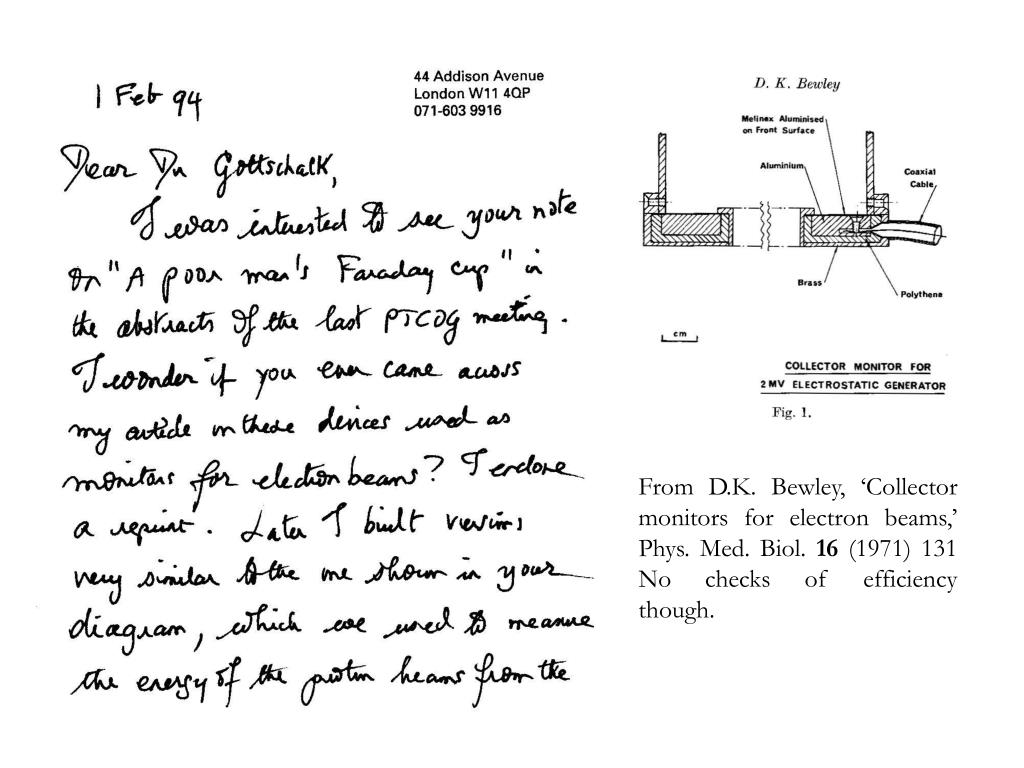 1 Feb 94
44 Addison Avenue
London W11 4QP
071-603 9916
Dear Dr Gottschalk,
I was interested to see your note
on "A poor man's Faraday cup" in
the abstracts of the last PTCOG meeting.
I wonder if you ever came across
my article on these devices used as
monitors for electron beams? I enclose
a reprint. Later I built versions
very similar to the one shown in your
diagram, which we used to measure
the energy of the proton beams from the
D. K. Bewley
Melinex Aluminised
on Front Surface
Aluminium
Coaxial
Cable
Brass
Polythene
cm
COLLECTOR MONITOR FOR
2 MV ELECTROSTATIC GENERATOR
Fig. 1.
From D.K. Bewley, ‘Collector
monitors for electron beams,’
Phys. Med. Biol. 16 (1971) 131
No checks of efficiency
though.